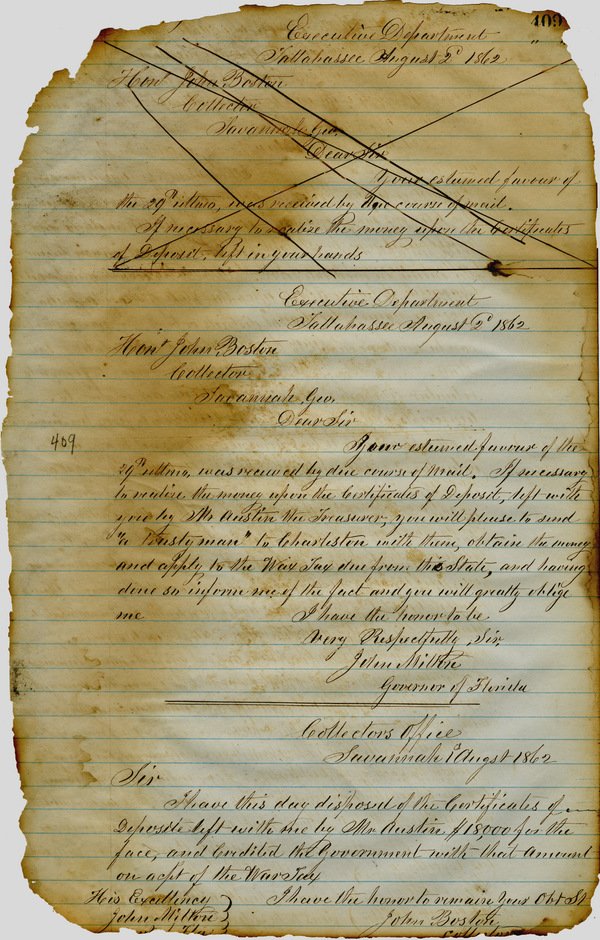 409
Executive Department
Tallahassee August 2d 1862
Honl John Boston
Collector
Savannah Geo,
Dear Sir
Your esteemed favour of
the 29th ultmo, was received by due course of mail.
If necessary to realize the money upon the Certificates
of Deposit, left in your hands
Executive Department
Tallahassee August 2d 1862
Honl John Boston
Collector
Savannah Geo,
Dear Sir
409
Your esteemed favour of the
29th ultmo, was received by due course of mail. If necessary
to realize the money upon the Certificates of Deposit, left with
you by Mr Austin the Treasurer, you will please to send
"a trusty man" to Charleston with them, obtain the money
and apply to the War Tax due from this State, and having
done so inform me of the fact and you will greatly oblige
me I have the honor to be
Very Respectfully, Sir,
John Milton
Governor of Florida
Collectors Office
Savannah 1st Augst 1862
Sir
I have this day disposed of the Certificates of
Deposite left with me by Mr Austin $18000 for the
face, and Credited the Government with that amount
on acpt of the War Tax
His Excellency } I have the honor to remain Your Obt St
John Milton } John Boston